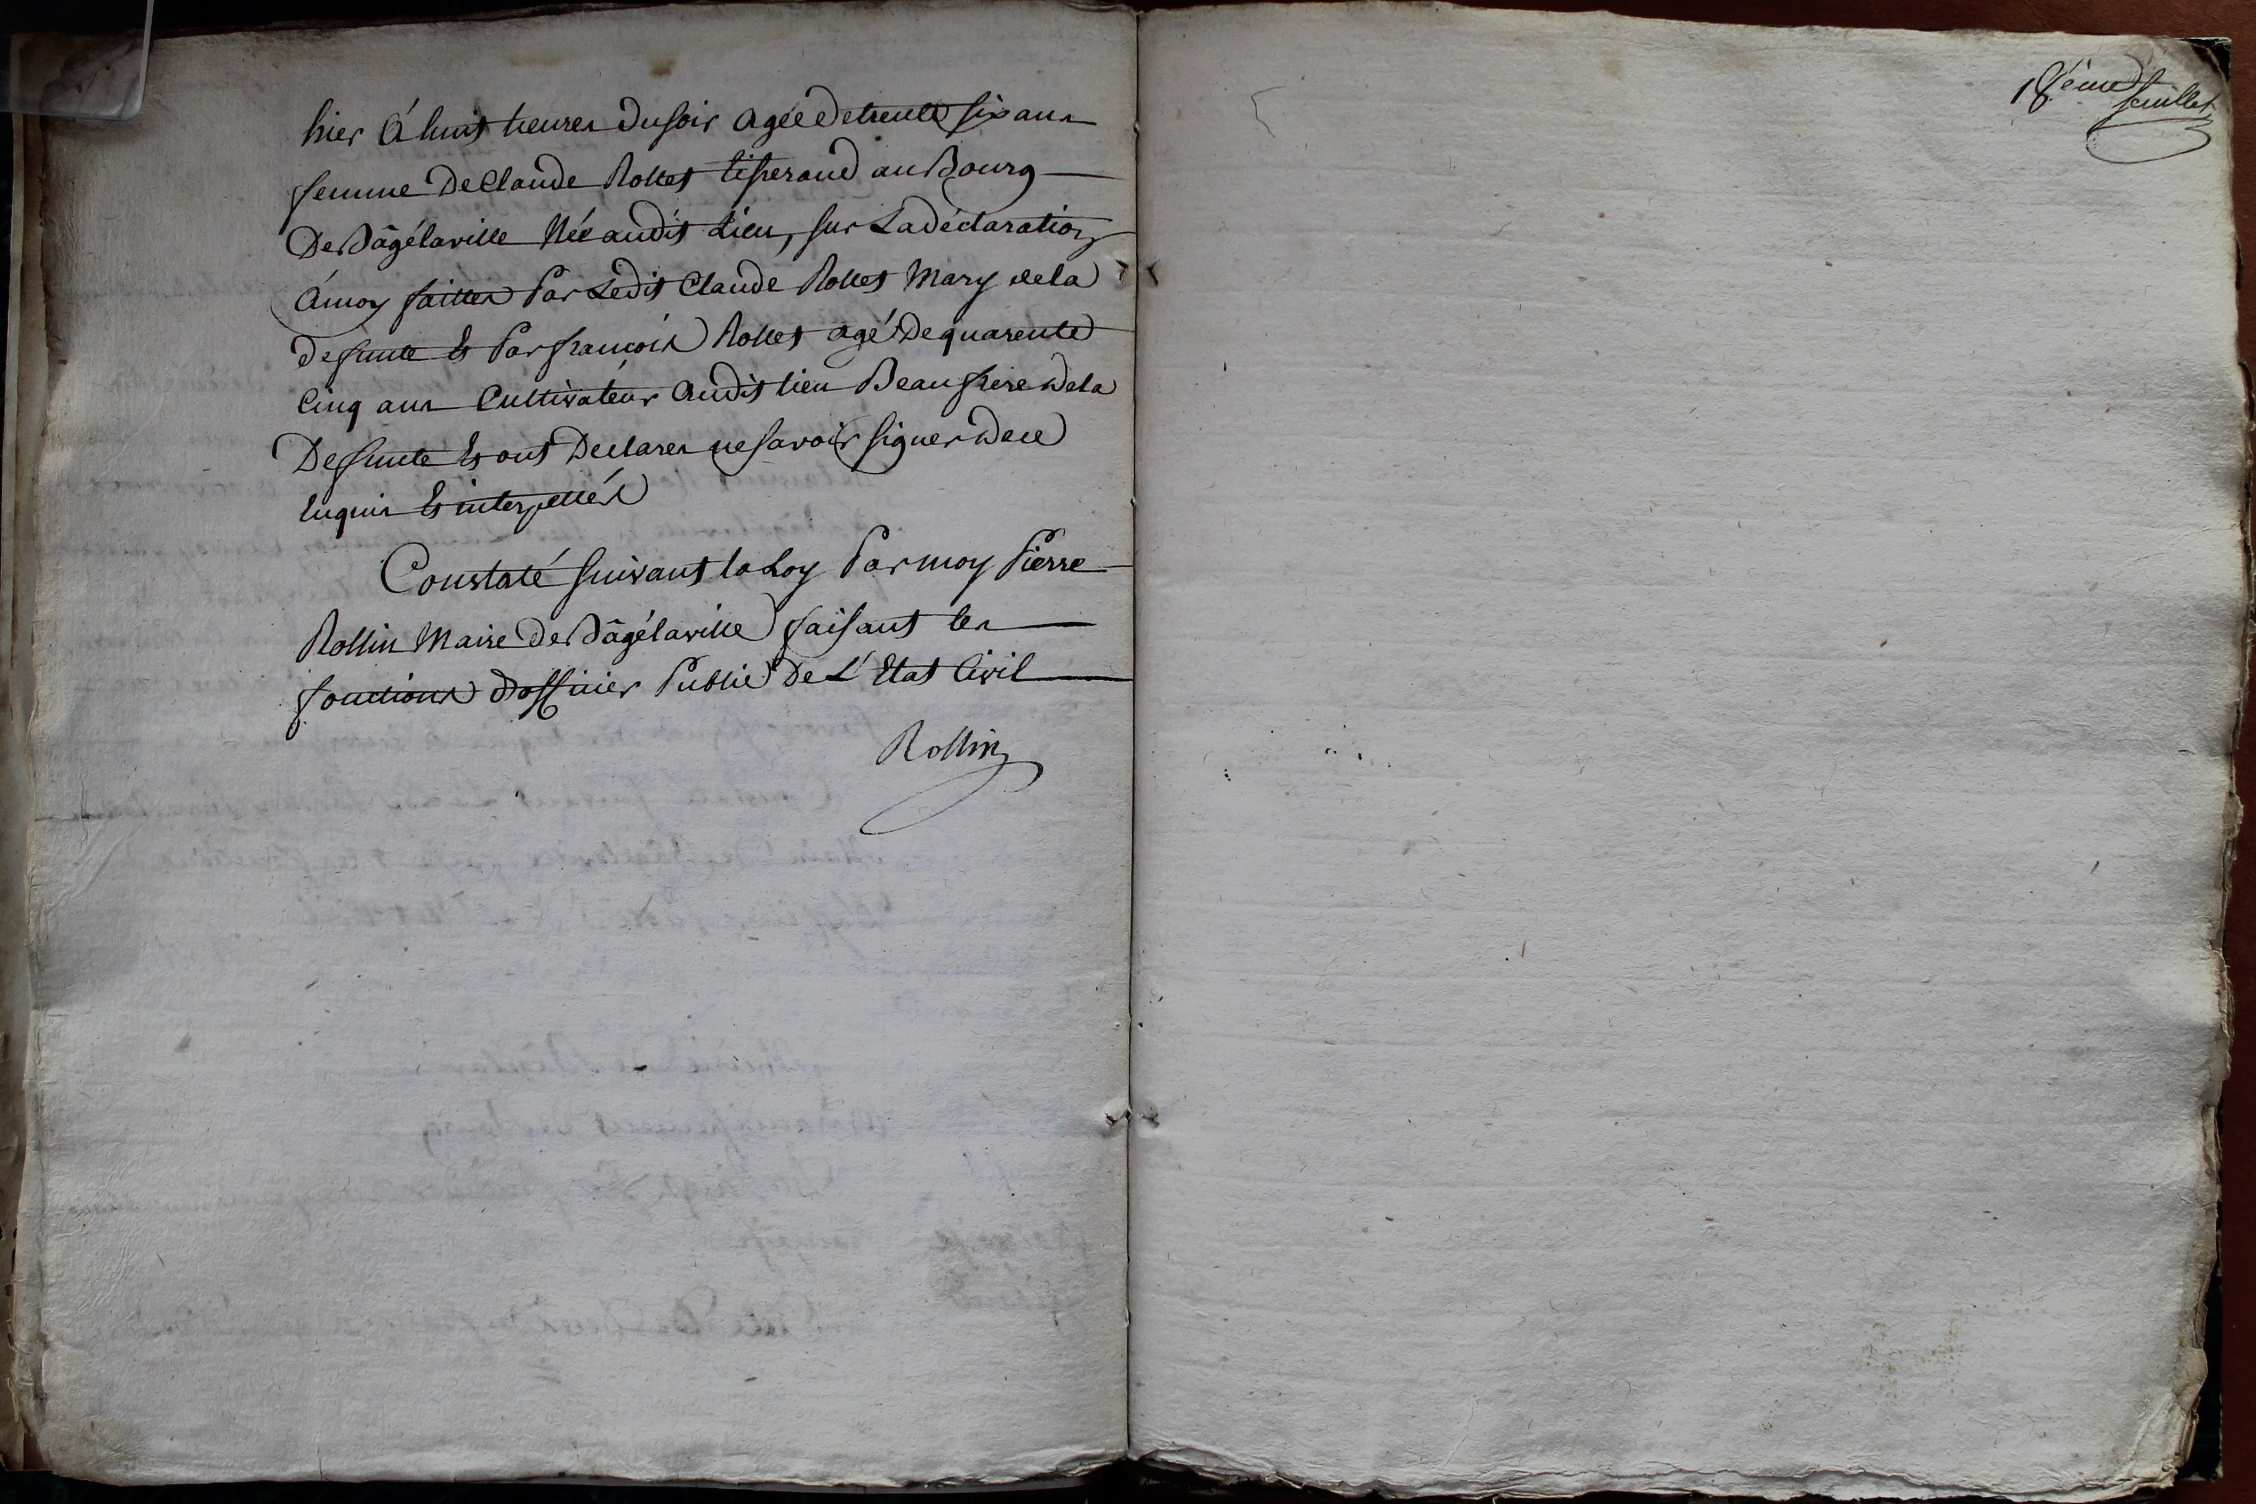 hier á huit heures du soir agée de trente six ans
femme de Claude Rollet tisserand au Bourg
De Dâgélaville Née audit Lieu, sur La déclaration
á moy faitte Par Ledit Claude Rollet Mary de la
defunte Et Par françois Rollet agé de quarente
Cinq ans Cultivateur audit lieu Beaufrere de la
Defunte Et ont Declarer ne savoir signer de ce
Enquis Et interpellés
Constaté suivant la Loy Par moy Pierre
Rollin Maire de Dâgélaville faisant les
fonctions d'officier Public De L'Etat Civil
Rollin
18ème
feuillet